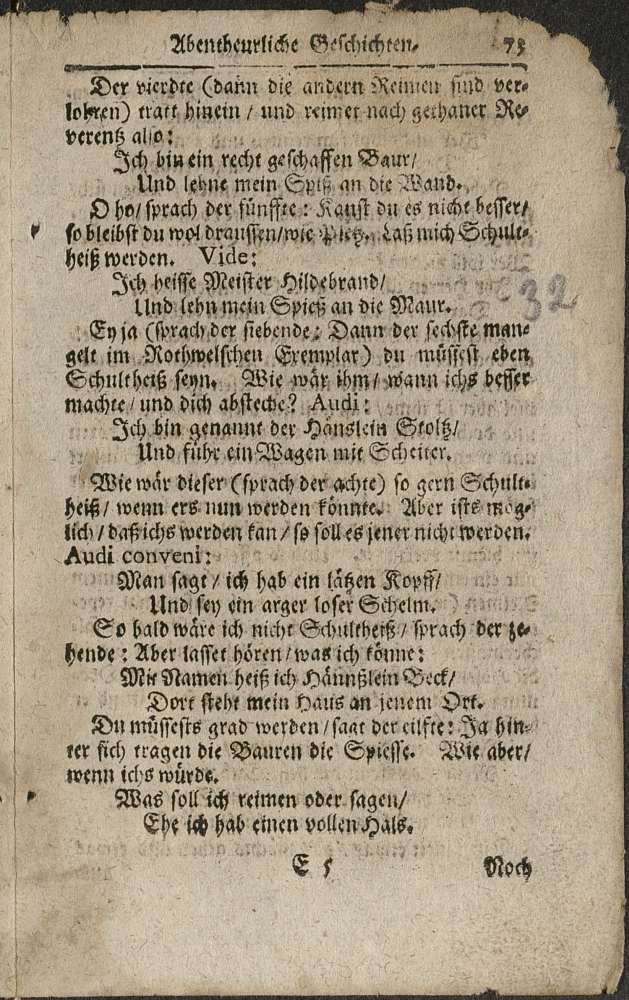 Abentheurliche Geschichten. 73
Der vierdte (dann die andern Reimen sind ver-
lohren) tratt hinein / und reimet nach gethaner Re-
verentz also:
Ich bin ein recht geschaffen Baur/
Und lehne mein Spiß an die Wand.
O ho/ sprach der fünffte: Kanst du es nicht besser/
so bleibst du wol draussen/wie Pletz. Laß mich Schult-
heiß werden. Vide:
Ich heisse Meister Hildebrand/
Und lehn mein Spieß an die Maur.
32
Ey ja (sprach der siebende: Dann der sechste man-
gelt im Rothwelschen Exemplar) du müssest eben
Schultheiß seyn. Wie wär ihm/ wann ichs besser
machte / und dich absteche? Audi:
Ich bin genannt der Hänslein Stoltz/
Und führ ein Wagen mit Scheiter.
Wie wär dieser (sprach der achte) so gern Schult-
heiß / wenn ers nun werden könnte. Aber ists mög-
lich / daß ichs werden kan / so soll es jener nicht werden.
Audi conveni:
Man sagt / ich hab ein lätzen Kopff/
Und sey ein arger loser Schelm.
So bald wäre ich nicht Schultheiß / sprach der ze-
hende: Aber lasset hören / was ich könne:
Mit Namen heiß ich Hännßlein Beck/
Dort steht mein Haus an jenem Ort.
Du müssests grad werden / sagt der eilfte: Ja hin-
ter sich tragen die Bauren die Spiesse. Wie aber/
wenn ichs würde.
Was soll ich reimen oder sagen/
Ehe ich hab einen vollen Hals.
E 5 Noch